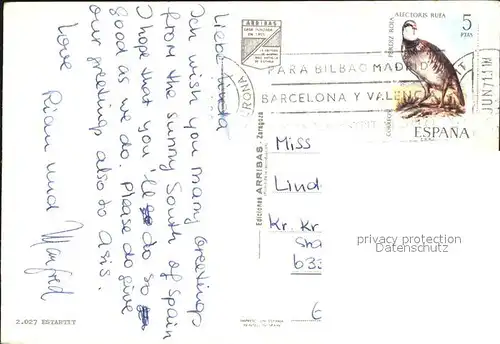 Liebe Lineta
Ich wish you many Greetings
from the sunny South of Spain
I hope that you 'le do so
good as we do. Please do give
our greetings also to Asis.
Love
Rian und Manfred
2.027 ESTARTIT
ARRIBAS
Ediciones ARRIBAS - Zaragoza
ALECTORIS RUFA
PERDIZ ROJA
5
PTAS
CORREOS
ESPAÑA
PARA BILBAO MADRID
BARCELONA Y VALENC
Miss
Lind
Kr. Kr
Sha
633
6
privacy protection
oldthing.com